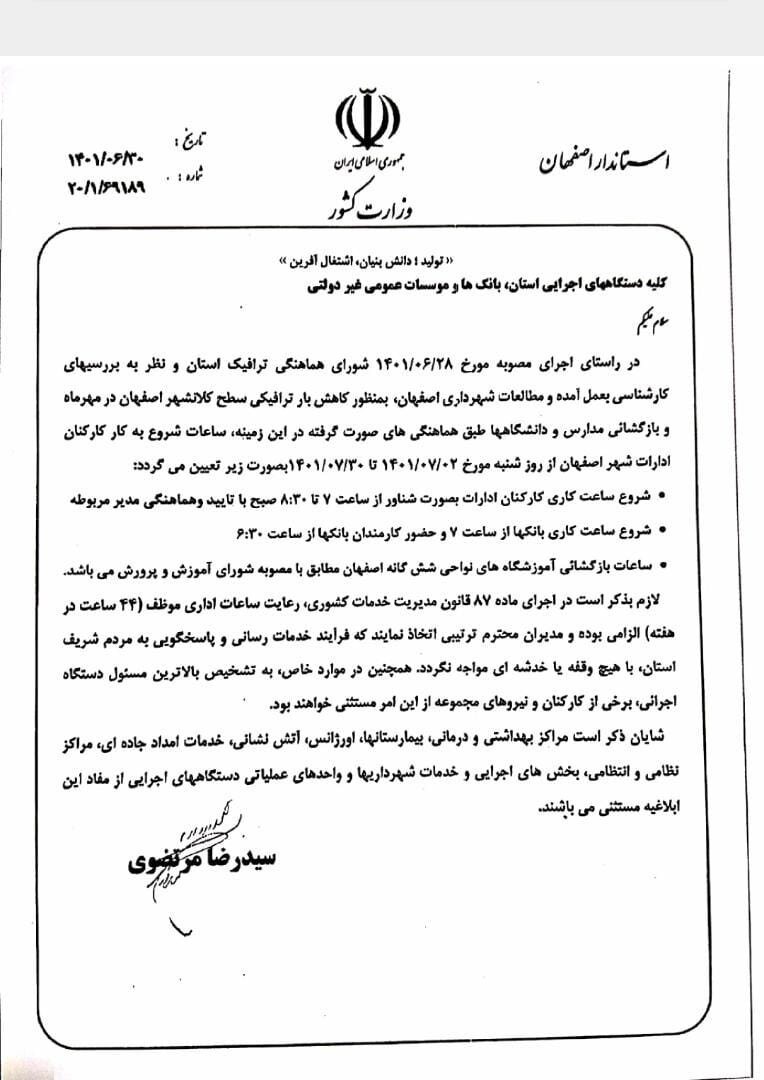 جمهوری اسلامی ایران
وزارت کشور
استاندار اصفهان
تاریخ : ۱۴۰۱/۰۶/۳۰
شماره : ۲۰/۱/۶۹۱۸۹
« تولید ؛ دانش بنیان، اشتغال آفرین »
کلیه دستگاههای اجرایی استان، بانک ها و موسسات عمومی غیر دولتی
سلام علیکم
در راستای اجرای مصوبه مورخ ۱۴۰۱/۰۶/۲۸ شورای هماهنگی ترافیک استان و نظر به بررسیهای
کارشناسی بعمل آمده و مطالعات شهرداری اصفهان، بمنظور کاهش بار ترافیکی سطح کلانشهر اصفهان در مهرماه
و بازگشائی مدارس و دانشگاهها طبق هماهنگی های صورت گرفته در این زمینه، ساعات شروع به کار کارکنان
ادارات شهر اصفهان از روز شنبه مورخ ۱۴۰۱/۰۷/۰۲ تا ۱۴۰۱/۰۷/۳۰بصورت زیر تعیین می گردد:
• شروع ساعت کاری کارکنان ادارات بصورت شناور از ساعت ۷ تا ۸:۳۰ صبح با تایید وهماهنگی مدیر مربوطه
• شروع ساعت کاری بانکها از ساعت ۷ و حضور کارمندان بانکها از ساعت ۶:۳۰
• ساعات بازگشائی آموزشگاه های نواحی شش گانه اصفهان مطابق با مصوبه شورای آموزش و پرورش می باشد.
لازم بذکر است در اجرای ماده ۸۷ قانون مدیریت خدمات کشوری، رعایت ساعات اداری موظف (۴۴ ساعت در
هفته) الزامی بوده و مدیران محترم ترتیبی اتخاذ نمایند که فرآیند خدمات رسانی و پاسخگویی به مردم شریف
استان، با هیچ وقفه یا خدشه ای مواجه نگردد. همچنین در موارد خاص، به تشخیص بالاترین مسئول دستگاه
اجرائی، برخی از کارکنان و نیروهای مجموعه از این امر مستثنی خواهند بود.
شایان ذکر است مراکز بهداشتی و درمانی، بیمارستانها، اورژانس، آتش نشانی، خدمات امداد جاده ای، مراکز
نظامی و انتظامی، بخش های اجرایی و خدمات شهرداریها و واحدهای عملیاتی دستگاههای اجرایی از مفاد این
ابلاغیه مستثنی می باشند.
سیدرضا مرتضوی